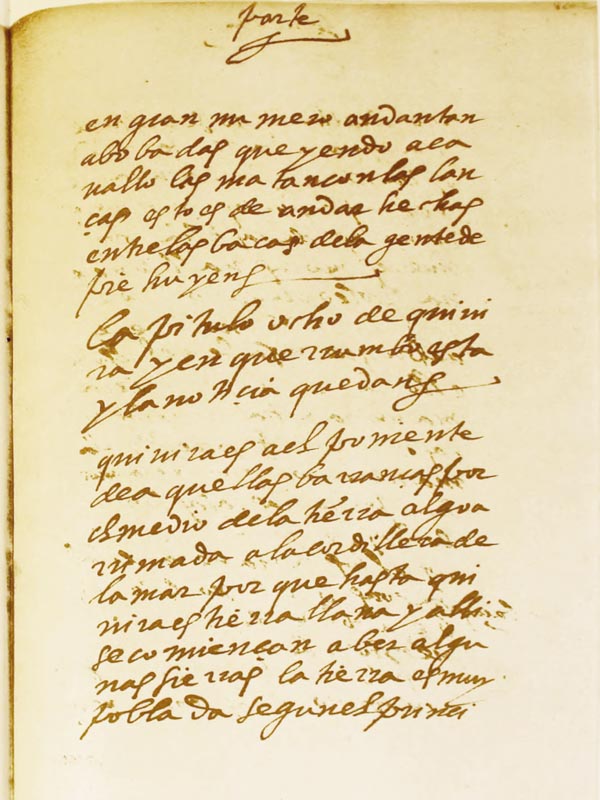 parte
en gran numero andan tan
abobadas que yendo a ca
uallo las matan con las lan
cas esto es de andar hechas
entre las bacas de la gente de
pie huyen
Capitulo ocho de quiui
ra y en que rrumbo esta
y la noticia que dan
quiuira es a el poniente
de a quellas barrancas por
el medio de la tierra algo a
rrimada a la cordillera de
la mar por que hasta qui
uira es tierra llana y alli
se comiencan a ber algu
nas sierras la tierra es muy
poblada segun el princi